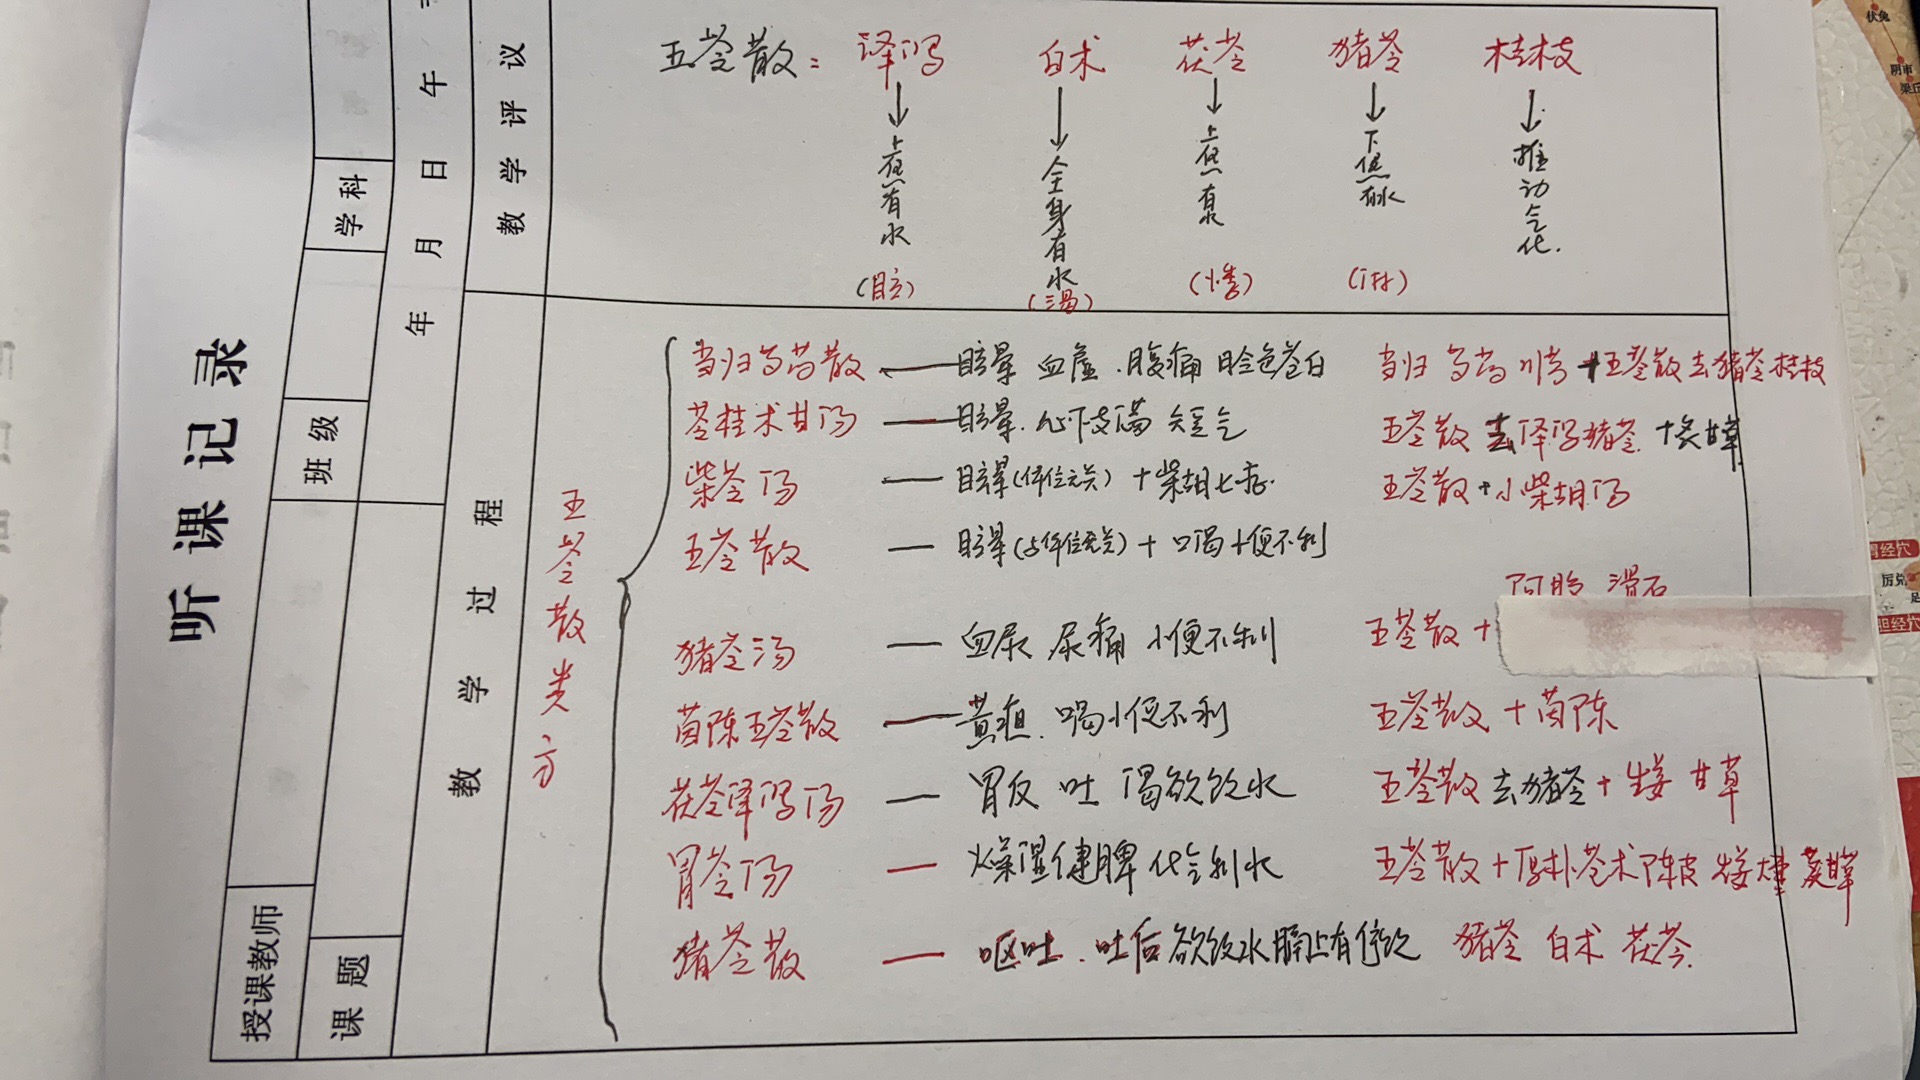 听课记录
授课教师
班级
学科
课题
年月日午
教学过程
教学评议
五苓散: 泽泻 白术 茯苓 猪苓 桂枝
上焦有水 全身有水 上焦有水 下焦有水 推动气化.
(眩) (渴) (悸) (淋)
五苓散类方
当归芍药散 — 眩晕 血虚.腹痛 脸色苍白 当归 芍药 川芎 +五苓散去猪苓桂枝
苓桂术甘汤 — 眩晕.心下支满 短气 五苓散去泽泻猪苓+炙甘草
柴苓汤 — 眩晕(体位无关)+柴胡七季. 五苓散+小柴胡汤
五苓散 — 眩晕(与体位无关)+口渴+小便不利
阿胶 滑石
猪苓汤 — 血尿 尿痛 小便不利 五苓散+
茵陈五苓散 — 黄疸.渴小便不利 五苓散+茵陈
茯苓泽泻汤 — 胃反 吐 渴欲饮水 五苓散去猪苓+生姜 甘草
胃苓汤 — 燥湿健脾 化气利水 五苓散+厚朴苍术陈皮 生姜大枣 炙甘草
猪苓散 — 呕吐.吐后欲饮水膈上有停饮 猪苓 白术 茯苓.
伏兔
阴市
梁丘
胃经穴
厉兑
胆经穴